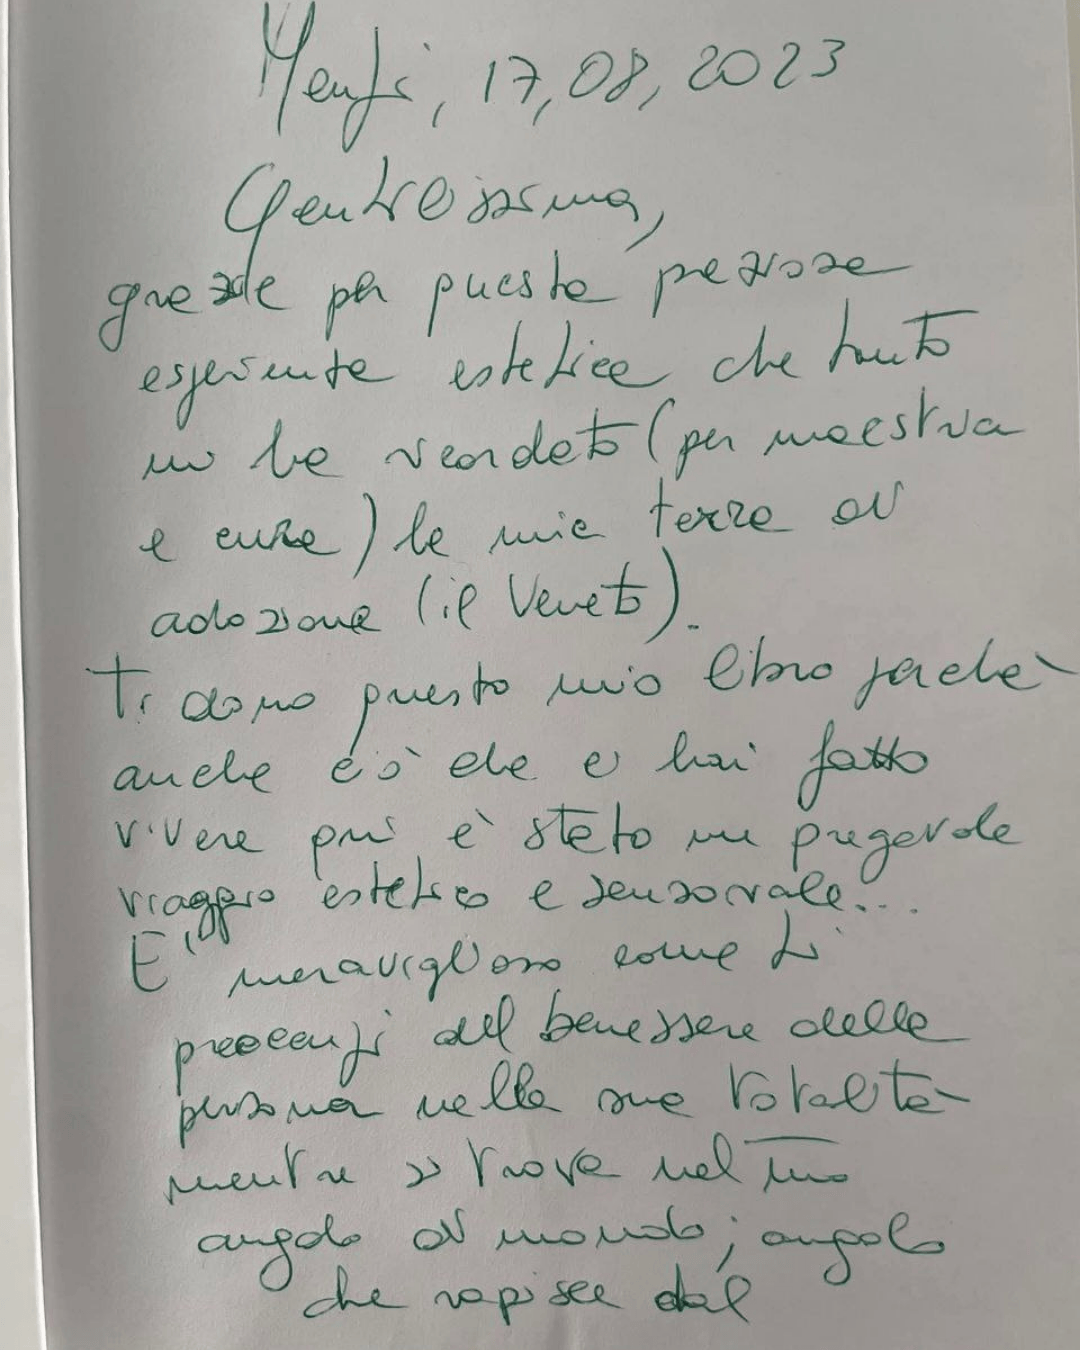 Menfi, 17,08,2023
Gentilissima,
grazie per questa preziosa
esperienza estetica che tanto
mi ha ricordato (per maestria
e cura) la mia terra di
adozione (il Veneto).
Ti dono questo mio libro perché
anche ciò che ci hai fatto
vivere qui è stato un pregevole
viaggio estetico e sensoriale...
E' meraviglioso come ti
preoccupi del benessere della
persona nella sua totalità
mentre si trova nel tuo
angolo di mondo; angolo
che rapisce dal